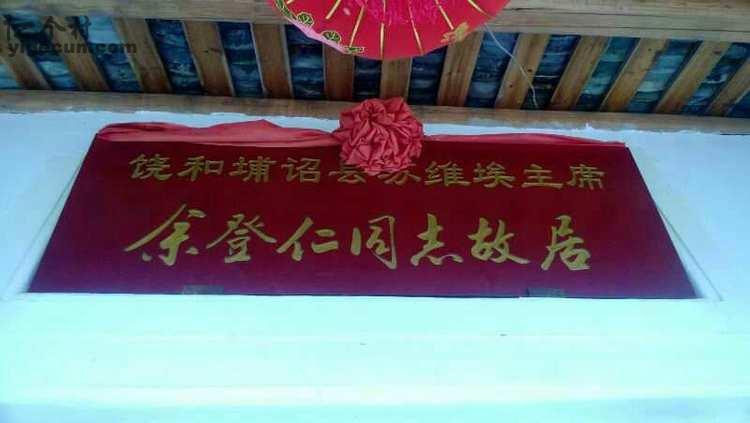 亿个村
yigecun.com
饶和埔诏县苏维埃主席
余登仁同志故居